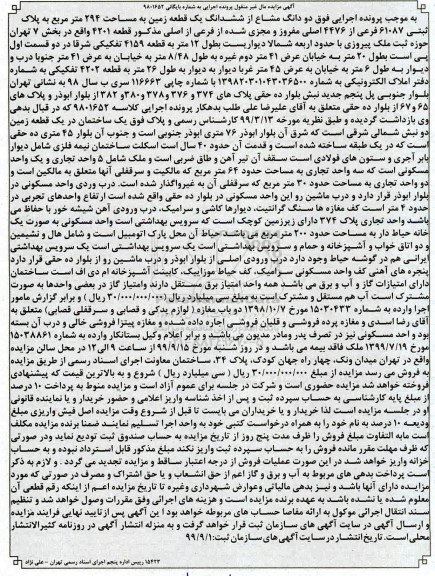 آگهی مزایده مال غیر منقول پرونده اجرایی به شماره بایگانی ۹۸۰۱۶۵۲
به موجب پرونده اجرایی فوق دو دانگ مشاع از ششدانگ یک قطعه زمین به مساحت ۲۹۴ متر مربع به پلاک
ثبتی ۶۱۰۸۷ فرعی از ۴۴۷۶ اصلی مفروز و مجزی شده از فرعی از اصلی مذکور قطعه ۴۲۰۱ واقع در بخش ۷ تهران
حوزه ثبت ملک پیروزی با حدود اربعه شمالا دیواریست بطول ۱۲ متر به قطعه ۴۱۵۹ تفکیکی شرقا در دو قسمت اول
پی است بطول ۲۰ متر به خیابان عرض ۴۱ متر دوم غیره به طول ۸/۴۸ متر به خیابان به عرض ۴۱ متر جنوبا درب و
دیوار به طول ۶ متر به خیابان به عرض ۴۵ متر غربا دیوار به دیوار به طول ۲۶ متر به قطعه ۴۲۰۲ تفکیکی به شماره
بلوار جنوبی پل پنجم جدید نبش بلوار ده حقی پلاک های ۳۷۴ و ۳۷۶ و ۳۷۸ و ۳۸۰ و ۳۸۲ از بلوار ابوذر و پلاک های
۶۵ و ۶۷ از بلوار ده حقی متعلق به آقای علیرضا علی طلب بدهکار پرونده اجرایی کلاسه ۹۸۰۱۶۵۲ که در قبال بدهی
وی بازداشت گردیده و طبق نظریه مورخه ۹۹/۳/۱۳ کارشناس رسمی و پلاک فوق یک ساختمان در یک قطعه زمین
دو نبش شمالی شرقی است که شرق آن بلوار ابوذر ۷۶ متری ابوذر جنوبی است و جنوب آن بلوار ۴۵ متری ده حقی
است که در یک طبقه ساخته شده است و قدمت آن حدود ۴۰ سال است اسکلت ساختمان نیمه فلزی شامل دیوار
بابر آجری و ستون های فولادی است سقف آن تیر آهن و طاق ضربی است و ملک شامل ۵ واحد تجاری و یک واحد
مسکونی است که سه واحد تجاری به مساحت حدود ۶۴ متر مربع که مالکیت و سرقفلی آنها متعلق به مالکین است و
دو واحد تجاری به مساحت حدود ۳۰ متر مربع که سرقفلی آن به غیرواگذار شده است. درب وردی واحد مسکونی در
بلوار ابوذر قرار دارد و درب ماشین رو این واحد مسکونی در بلوار ده حقی واقع شده است ارتفاع واحدهای تجربی در
حدود ۴ متر است کف مغازه ها سنگ گرانیت، دیوارها کاشی و سرامیک، درب ورودی آهن شیشه خور با حفاظ می
باشد واحد تجاری پلاک ۳۷۴ دارای زیرزمین کوچک است که سرویس بهداشتی است واحد مسکونی به صورت یک
خانه حیاط دار به مساحت حدود ۲۰۰ متر مربع می باشد. حیاط آن محل پارک اتومبیل است و شامل هال و نشیمن
و دو اتاق خواب و آشپزخانه و حمام و سرویس بهداشتی است یک سرویس بهداشتی است یک سرویس بهداشتی
ایرانی هم در گوشه حیاط وجود دارد درب ورودی اصلی از بلوار ابوذر و درب ماشین رو از بلوار ده حقی قرار دارد
پنجره های آهنی کف واحد مسکونی سرامیک، کف حیاط موزاییک، کابینت آشپزخانه ام دی اف است ساختمان
دارای امتیازات گاز و آب و برق می باشد همه واحد امتیاز برق مستقل دارند وامتیاز گاز در بعضی واحدها به صورت
مشترک است آب هم مستقل و مشترک است به مبلغ سی میلیارد ریال (۳۰/۰۰۰/۰۰۰/۰۰۰ ریال) و برابر گزارش مامور
اجرا وارده به شماره ۱۵۰۳۰۴۳۳ مورخ ۱۳۹۸/۱۰/۷ دو باب مغازه (لوازم یدکی و قصابی و سرقفلی قصابی) متعلق به
آقای رضا اسدی و مغازه پرده فروشی و قلیان فروشی اجاره داده شده و مغازه پیتزا فروشی خالی و درب آن بسته
بود و احد مسکونی نیز در تصرف پدر ومادر مدیون می باشد و برابر اعلام وکیل بستانکار وارده به شماره ۱۵۰۳۸۸۶۱
مورخ ۱۳۹۹/۷/۱۹ ملک فاقد بیمه می باشد و در روز شنبه مورخ ۹۹/۹/۱۵ از ساعت ۹ الی ۱۲ در محل سالن مزایده
واقع در تهران میدان ونک، چهار راه جهان کودک، پلاک ۳۴، ساختمان معاونت اجرای اسناد رسمی از طریق مزایده
به فروش می رسد مزایده از مبلغ ۳۰/۰۰۰/۰۰۰/۰۰۰ ریال (سی میلیارد ریال) شروع و به بالاترین قیمت که پیشنهادی
فروخته خواهد شد مزایده حضوری است و شرکت در جلسه برای عموم آزاد است و مزایده منوط به پرداخت ۱۰ درصد
از مبلغ پایه کارشناسی به حساب سپرده ثبت و پس از اخذ شناسه واریز اعلامی و حضور خریدار و یا نماینده قانونی
او در جلسه مزایده است لذا خریدار و یا خریداران می بایست تا قبل از شروع وقت مزایده اصل فیش واریزی مبلغ
ودیعه ۱۰ درصد به نام خود را به همراه درخواست کتبی خود به واحد اجرا تسلیم نمایند ضمنا برنده مزایده مکلف
است مابه التفاوت مبلغ فروش را ظرف مدت پنج روز از تاریخ مزایده به حساب صندوق ثبت تودیع نماید ودر صورتی
که ظرف مهلت مقرر مانده فروش را به حساب سپرده ثبت واریز نکند مبلغ مذکور قابل استرداد نبوده و به حساب
خزانه واریز خواهد شد در این صورت عملیات فروش از درجه اعتبار ساقط و مزایده تجدید می گردد. و لازم به ذکر
است پرداخت بدهی های مربوط به آب و برق و گاز اعم از حق انشعاب و یا حق اشتراک و مصرف در صورتی که مورد
مزایده دارای آنها باشد و نیز بدهی مالیاتی وعوارض شهرداری و غیره تا تاریخ مزایده اعم از اینکه رقم قطعی آن
معلوم شده یا نشده باشد به عهده برنده مزایده است و هزینه های اجرائی وفق مقررات وصول خواهد شد و تنظیم
سند انتقال اجرائی موکول به ارائه مفاصا حساب های مربوطه خواهد بود! این آگهی پس از تایید نهایی فرایند مزایده
و ارسال آگهی در سایت آگهی های سازمان ثبت قرار خواهد گرفت و به منزله انتشار آگهی در روزنامه کثیرالانتشار
محلی است. تاریخ انتشار در سایت آگهی های سازمان ثبت: ۹۹/۹/۱
۱۵۴۲۳ رییس اداره پنجم اجرای اسناد رسمی تهران - علی نژاد